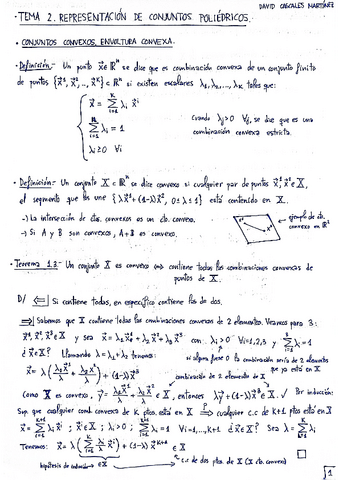 DAVID CASCALES MARTÍNEZ
TEMA 2. REPRESENTACIÓN DE CONJUNTOS POLIÉDRICOS.
• CONJUNTOS CONVEXOS. ENVOLTURA CONVEXA.
• Definición.- Un punto x⃗ ∈ ℝⁿ se dice que es combinación convexa de un conjunto finito
de puntos {x⃗¹, x⃗², ..., x⃗ᴷ} ⊂ ℝⁿ si existen escalares λ₁, λ₂, ..., λₖ tales que:
x⃗ = Σᵢ₌₁ᴷ λᵢ x⃗ⁱ
Σᵢ₌₁ᴷ λᵢ = 1
λᵢ ≥ 0 ∀i
Cuando λⱼ > 0 ∀j, se dice que es una
combinación convexa estricta.
• Definición.- Un conjunto X ⊂ ℝⁿ se dice convexo si cualquier par de puntos x⃗¹, x⃗² ∈ X,
el segmento que los une {λx⃗¹ + (1-λ)x⃗², 0 ≤ λ ≤ 1} está contenido en X.
→ La intersección de ctos. convexos es un cto. convexo.
→ Si A y B son convexos, A+B es convexo.
ejemplo de cto.
convexo en ℝ²
• Teorema 1.3.- Un conjunto X es convexo ⟺ contiene todas las combinaciones convexas de
puntos de X.
D/ ⟸| Si contiene todas, en específico contiene las de dos.
⟹| Sabemos que X contiene todas las combinaciones convexas de 2 elementos. Veamos para 3:
x⃗¹, x⃗², x⃗³ ∈ X y sea x⃗ = λ₁x⃗¹ + λ₂x⃗² + λ₃x⃗³ con λᵢ > 0 ∀i=1,2,3 y Σᵢ₌₁³ λᵢ = 1
¿x⃗ ∈ X? Llamando λ = λ₁ + λ₂ tenemos:
si alguna fuese 0 la combinación sería de 2 elementos
que ya está en X
x⃗ = λ(λ₁x⃗¹/λ + λ₂x⃗²/λ) + (1-λ)x⃗³
combinación de 2 elementos de X
Como X es convexo, y⃗ = λ₁x⃗¹/λ + λ₂x⃗²/λ ∈ X, entonces λy⃗ + (1-λ)x⃗³ ∈ X. ✓ Por inducción:
Sup. que cualquier comb. convexa de K ptos. está en X ⟹ cualquier c.c de K+1 ptos está en X
x⃗ = Σᵢ₌₁ᴷ⁺¹ λᵢ x⃗ⁱ ; x⃗ⁱ ∈ X ; λᵢ > 0 ; Σᵢ₌₁ᴷ⁺¹ λᵢ = 1 ∀i=1,...,K+1 ¿x⃗ ∈ X? Sea λ = Σᵢ₌₁ᴷ λᵢ
Tenemos: x⃗ = λ(Σᵢ₌₁ᴷ λᵢ/λ x⃗ⁱ) + (1-λ)x⃗ᴷ⁺¹ ∈ X
hipótesis de inducción → ∈ X
c.c de dos ptos. de X (X cto. convexo)
1